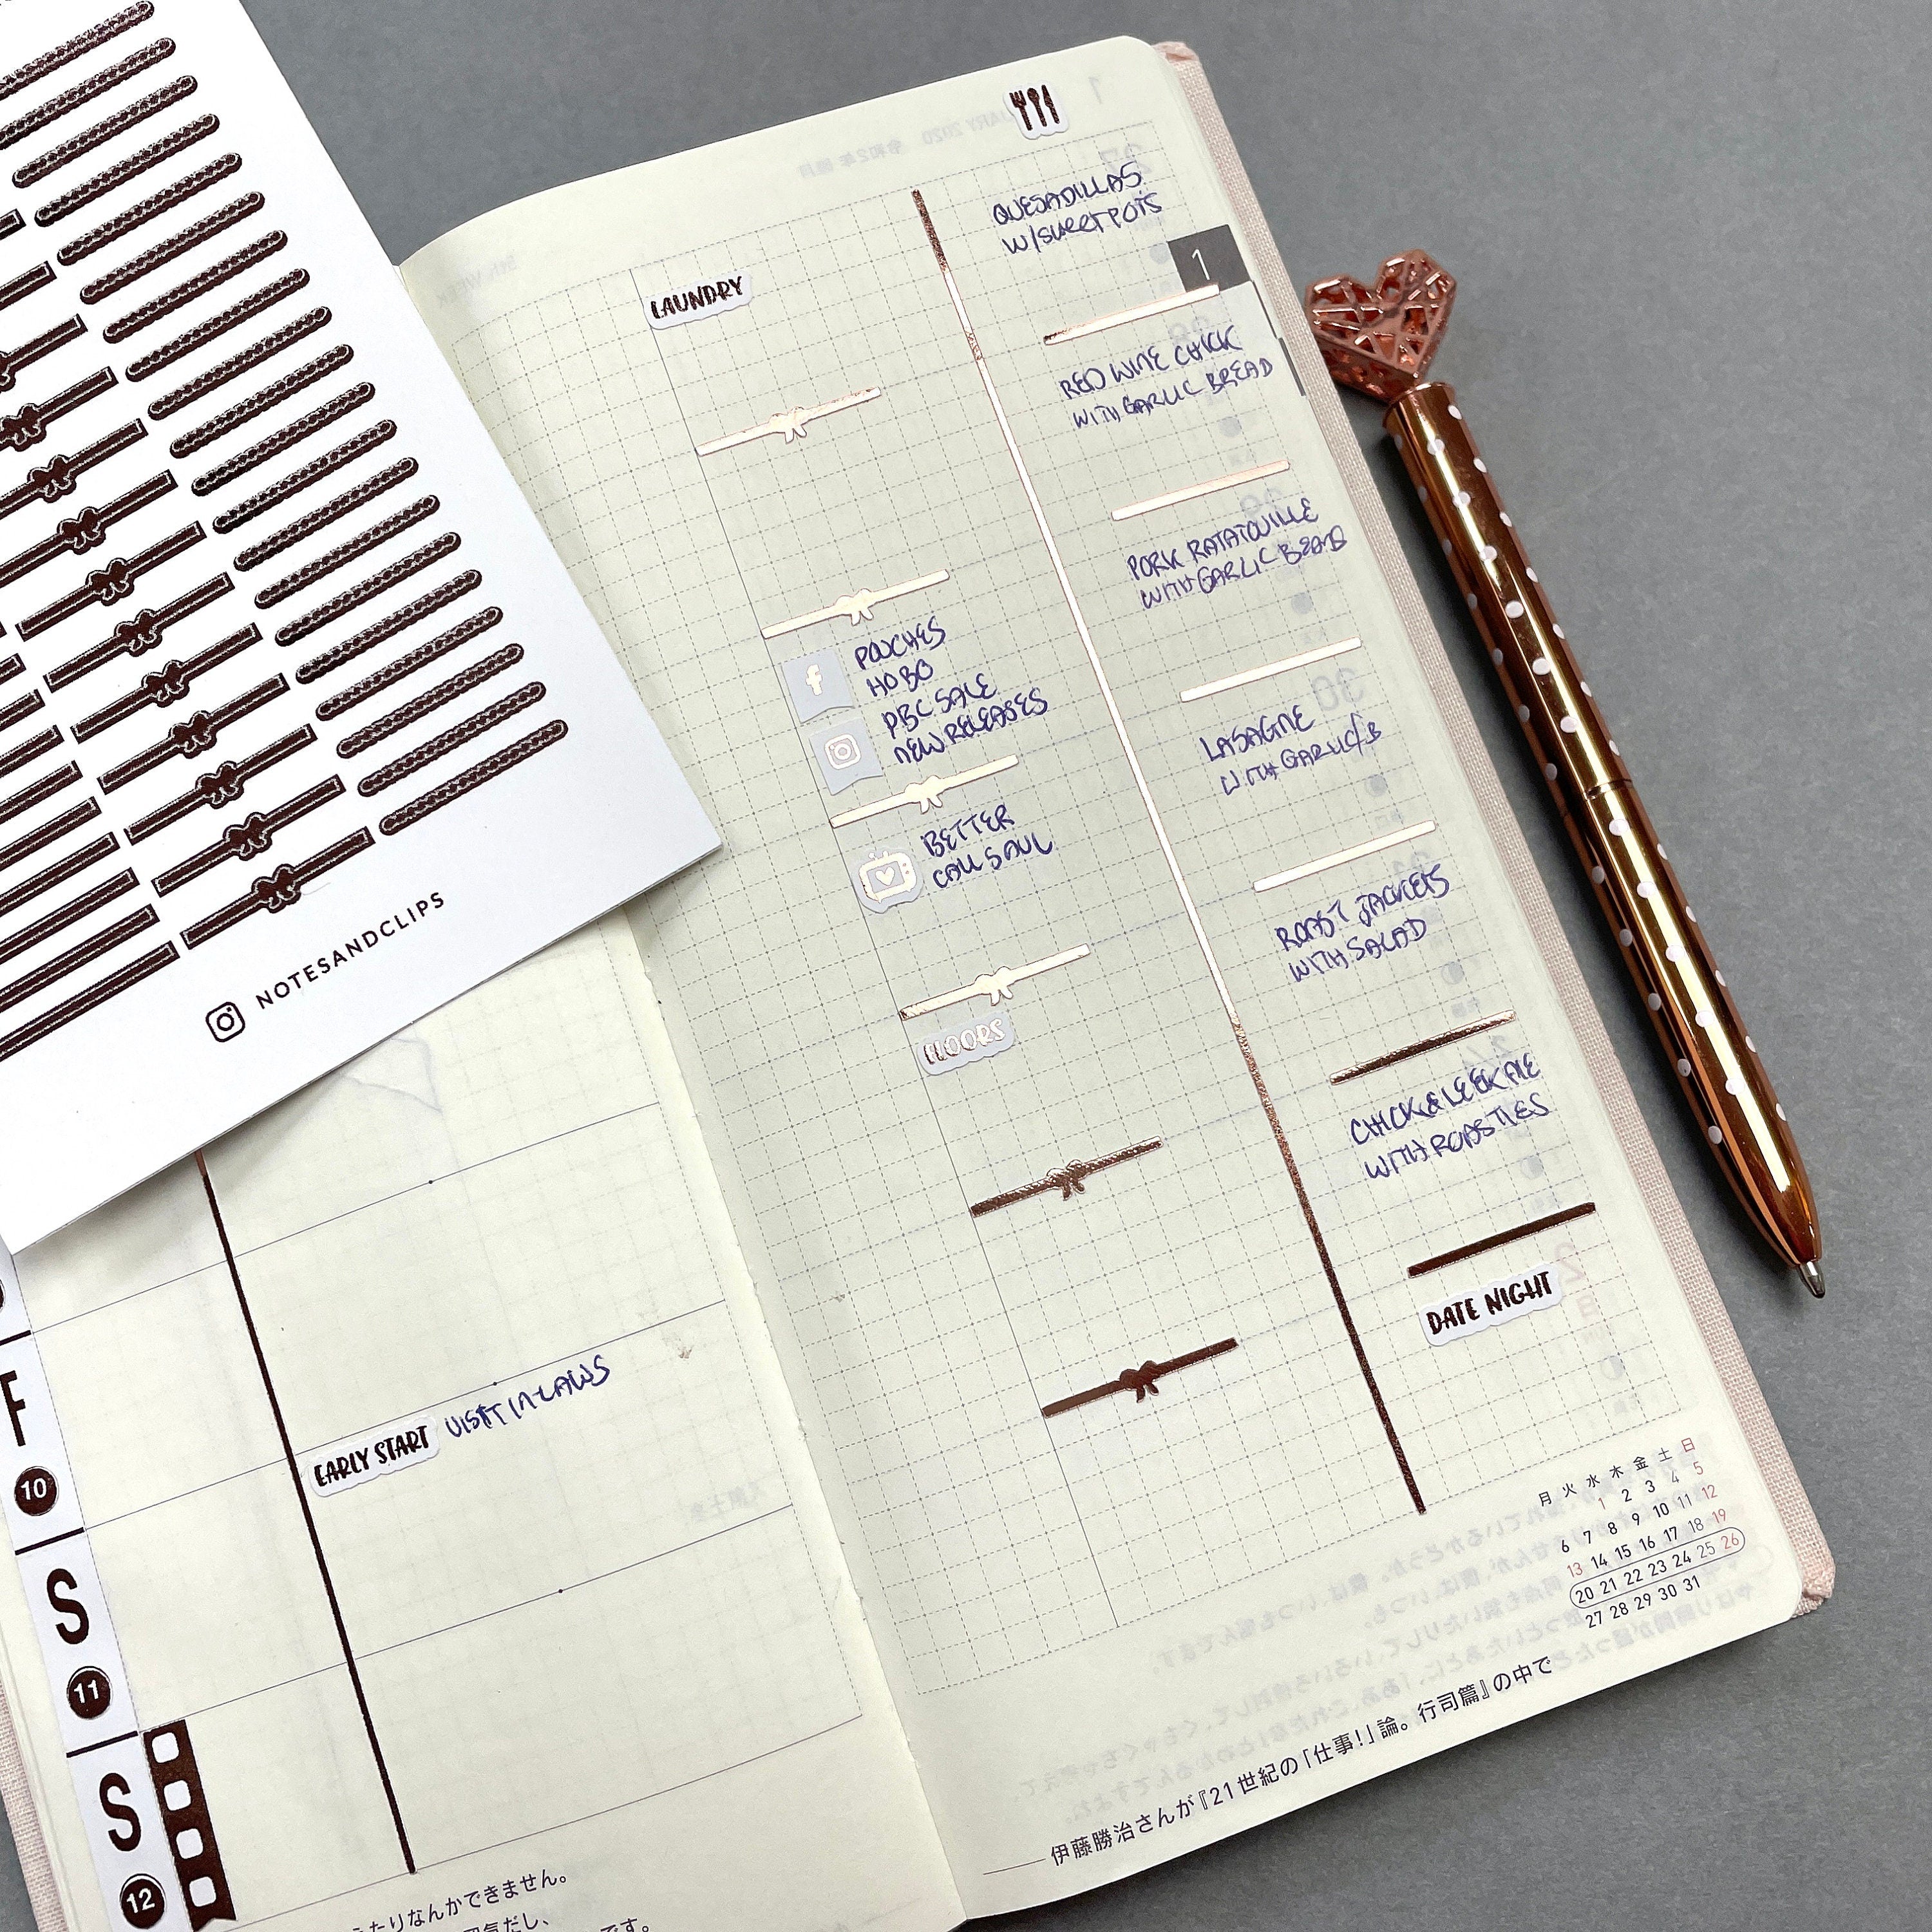 NOTESANDCLIPS
F
10
S
11
S
12
EARLY START VISIT IN-LAWS
LAUNDRY
f
POUCHES
HOBO
PBC SALE
NEW RELEASES
BETTER
CALL SAUL
FLOORS
QUESADILLAS
W/SWEET POTS
1
RED WINE CHICK
WITH GARLIC BREAD
PORK RATATOUILLE
WITH GARLIC BREAD
LASAGNE
WITH GARLIC/B
ROAST JACKETS
WITH SALAD
CHICK & LEEK PIE
WITH ROASTIES
DATE NIGHT
月 火 水 木 金 土 日
1 2 3 4 5
6 7 8 9 10 11 12
13 14 15 16 17 18 19
20 21 22 23 24 25 26
27 28 29 30 31
伊藤勝治さんが『21世紀の「仕事!」論。行司篇』の中で
たりなんかできません。
です。